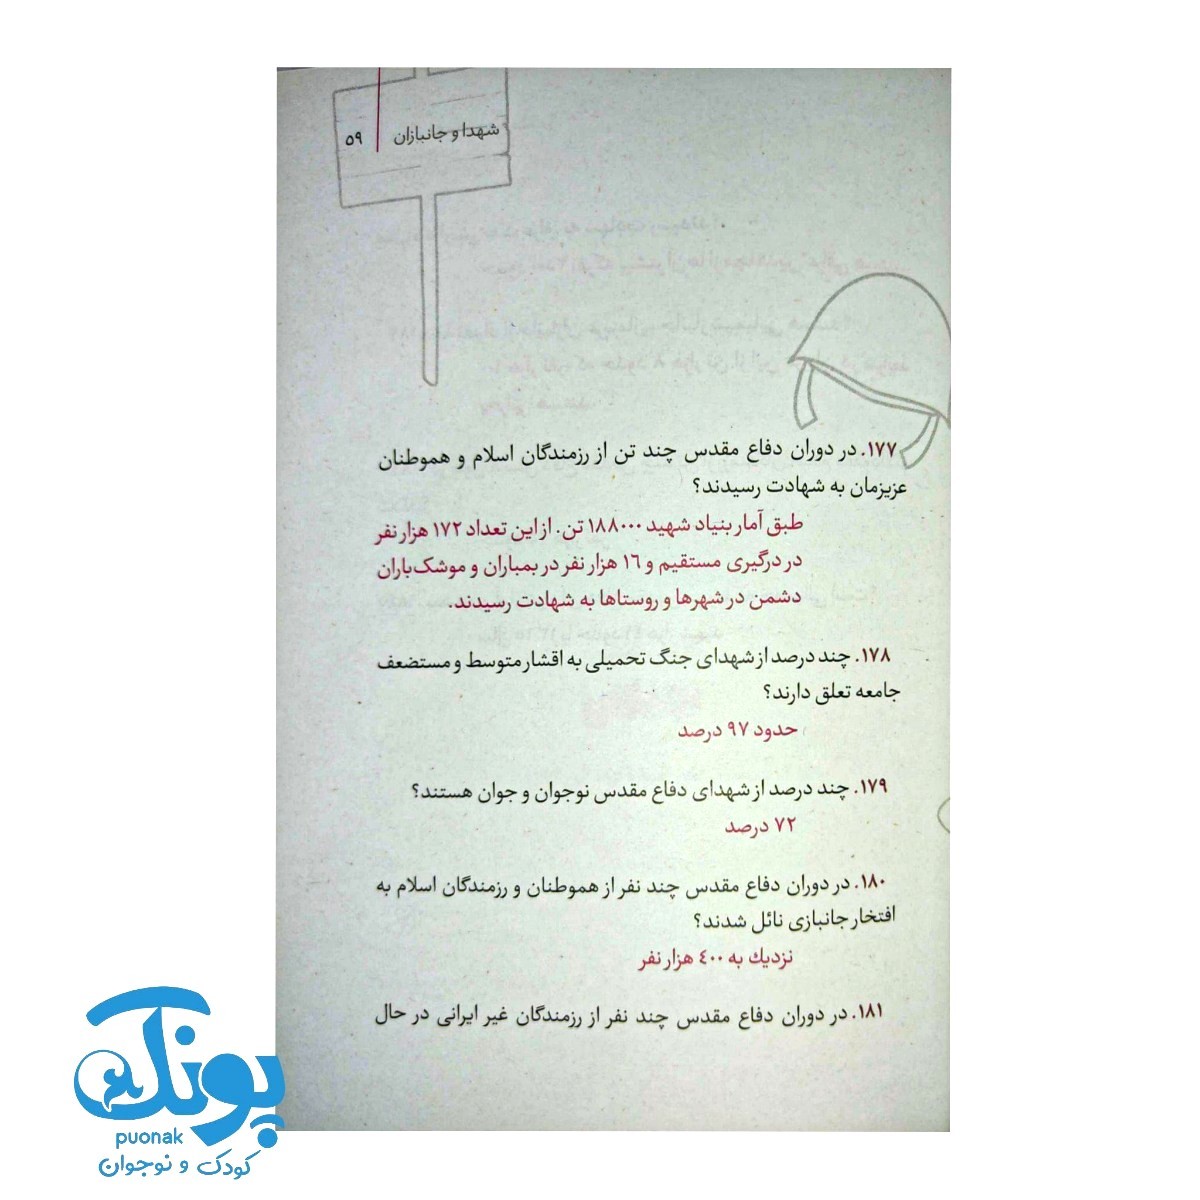 شهدا و جانبازان
۵۹
۱۷۷. در دوران دفاع مقدس چند تن از رزمندگان اسلام و هموطنان
عزیزمان به شهادت رسیدند؟
طبق آمار بنیاد شهید ۱۸۸۰۰۰ تن. از این تعداد ۱۷۲ هزار نفر
در درگیری مستقیم و ۱۶ هزار نفر در بمباران و موشک‌باران
دشمن در شهرها و روستاها به شهادت رسیدند.
۱۷۸. چند درصد از شهدای جنگ تحمیلی به اقشار متوسط و مستضعف
جامعه تعلق دارند؟
حدود ۹۷ درصد
۱۷۹. چند درصد از شهدای دفاع مقدس نوجوان و جوان هستند؟
۷۲ درصد
۱۸۰. در دوران دفاع مقدس چند نفر از هموطنان و رزمندگان اسلام به
افتخار جانبازی نائل شدند؟
نزدیك به ۴۰۰ هزار نفر
۱۸۱. در دوران دفاع مقدس چند نفر از رزمندگان غیر ایرانی در حال
پونک
puonak
کودک و نوجوان